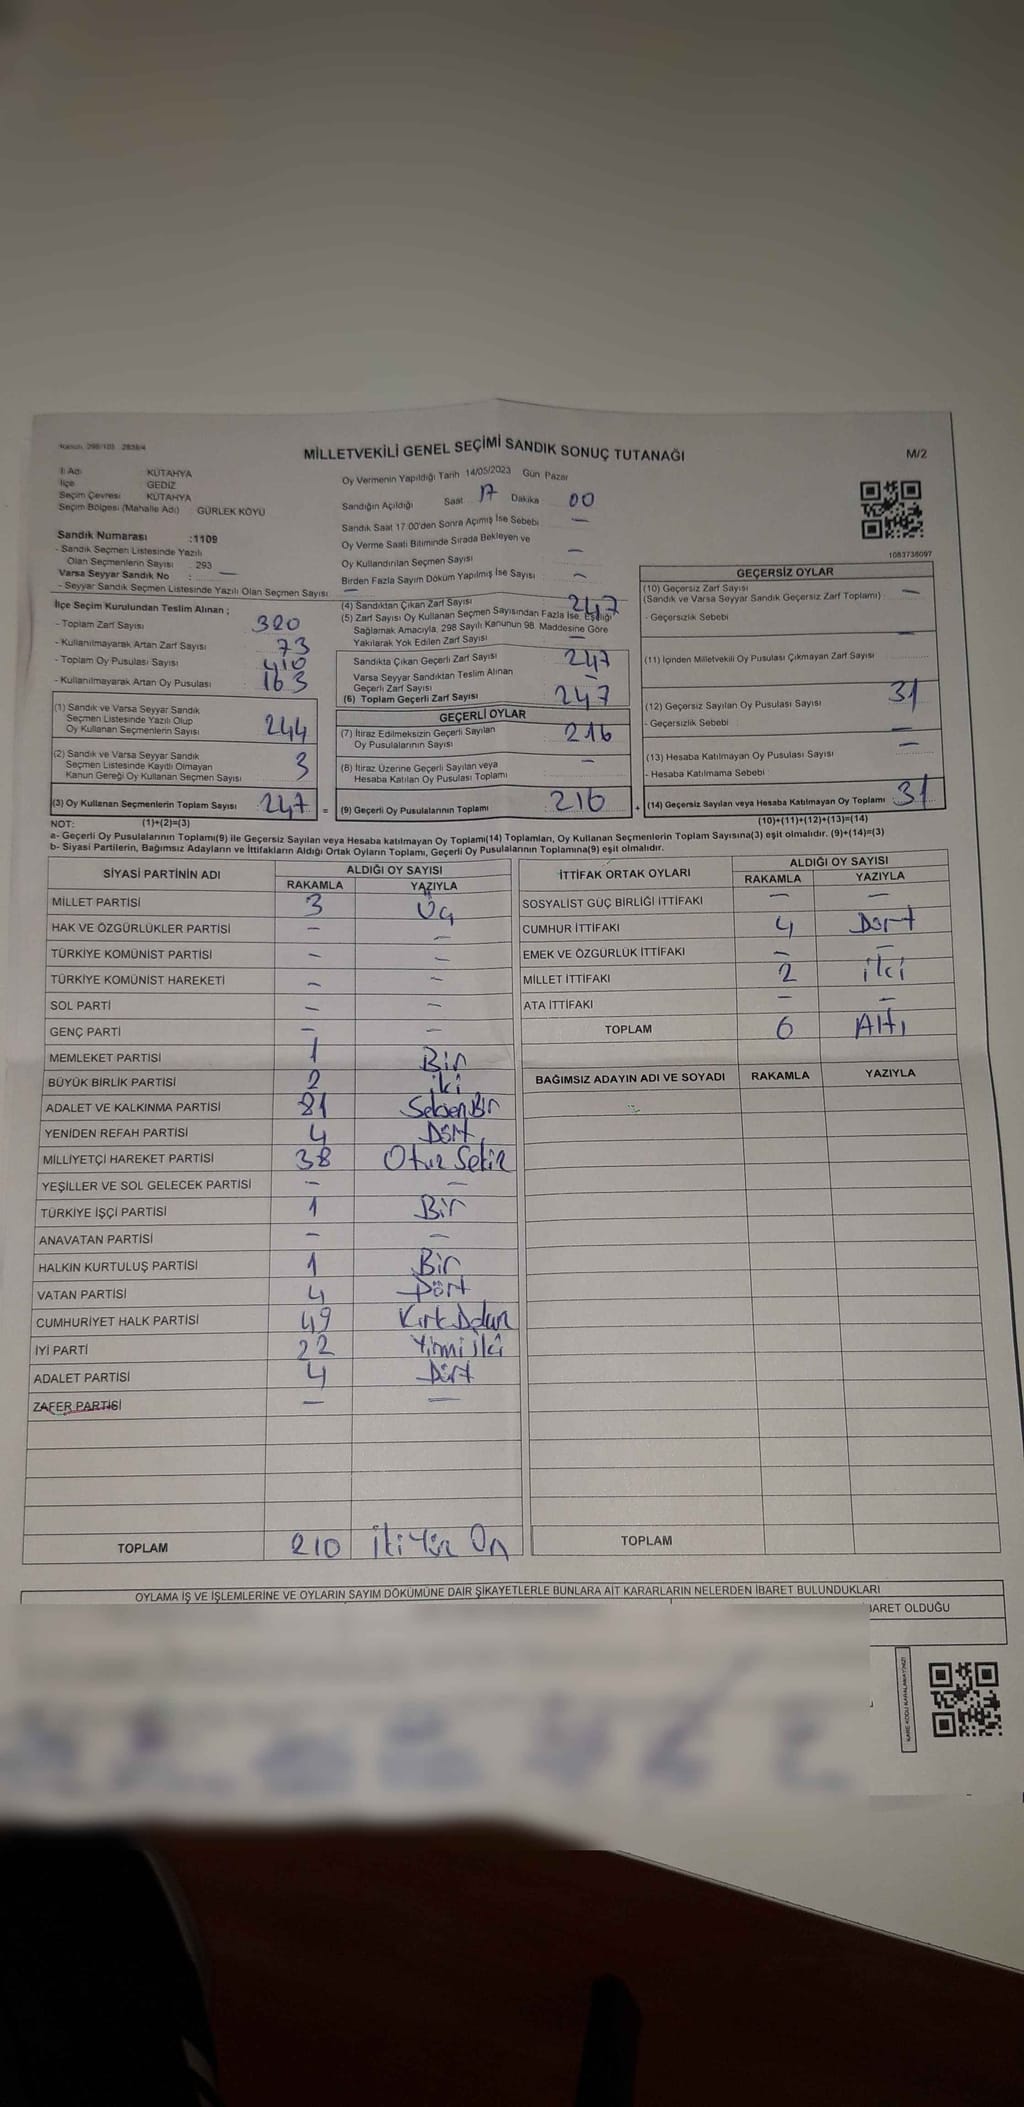 Kanun: 298/105 2839/4
MİLLETVEKİLİ GENEL SEÇİMİ SANDIK SONUÇ TUTANAĞI
M/2
İl Adı KÜTAHYA
İlçe GEDİZ
Seçim Çevresi KÜTAHYA
Seçim Bölgesi (Mahalle Adı) GÜRLEK KÖYÜ
Oy Vermenin Yapıldığı Tarih 14/05/2023 Gün Pazar
Sandığın Açıldığı Saat 17 Dakika 00
Sandık Saat 17:00'den Sonra Açımış İse Sebebi —
Oy Verme Saati Bitiminde Sırada Bekleyen ve
Oy Kullandırılan Seçmen Sayısı —
Birden Fazla Sayım Döküm Yapılmış İse Sayısı —
1083738097
Sandık Numarası :1109
- Sandık Seçmen Listesinde Yazılı
Olan Seçmenlerin Sayısı : 293
Varsa Seyyar Sandık No : —
- Seyyar Sandık Seçmen Listesinde Yazılı Olan Seçmen Sayısı : —
İlçe Seçim Kurulundan Teslim Alınan ;
- Toplam Zarf Sayısı 320
- Kullanılmayarak Artan Zarf Sayısı 73
- Toplam Oy Pusulası Sayısı 410
- Kullanılmayarak Artan Oy Pusulası 163
(1) Sandık ve Varsa Seyyar Sandık
Seçmen Listesinde Yazılı Olup
Oy Kullanan Seçmenlerin Sayısı 244
(2) Sandık ve Varsa Seyyar Sandık
Seçmen Listesinde Kayıtlı Olmayan
Kanun Gereği Oy Kullanan Seçmen Sayısı 3
(3) Oy Kullanan Seçmenlerin Toplam Sayısı 247 =
(4) Sandıktan Çıkan Zarf Sayısı 247
(5) Zarf Sayısı Oy Kullanan Seçmen Sayısından Fazla İse, Eşitliği
Sağlamak Amacıyla, 298 Sayılı Kanunun 98. Maddesine Göre
Yakılarak Yok Edilen Zarf Sayısı —
Sandıkta Çıkan Geçerli Zarf Sayısı 247
Varsa Seyyar Sandıktan Teslim Alınan
Geçerli Zarf Sayısı —
(6) Toplam Geçerli Zarf Sayısı 247
GEÇERLİ OYLAR
(7) İtiraz Edilmeksizin Geçerli Sayılan
Oy Pusulalarının Sayısı 216
(8) İtiraz Üzerine Geçerli Sayılan veya
Hesaba Katılan Oy Pusulası Toplamı —
(9) Geçerli Oy Pusulalarının Toplamı 216 +
GEÇERSİZ OYLAR
(10) Geçersiz Zarf Sayısı
(Sandık ve Varsa Seyyar Sandık Geçersiz Zarf Toplamı) —
- Geçersizlik Sebebi —
(11) İçinden Milletvekili Oy Pusulası Çıkmayan Zarf Sayısı
(12) Geçersiz Sayılan Oy Pusulası Sayısı 31
- Geçersizlik Sebebi —
(13) Hesaba Katılmayan Oy Pusulası Sayısı —
- Hesaba Katılmama Sebebi
(14) Geçersiz Sayılan veya Hesaba Katılmayan Oy Toplamı 31
NOT: (1)+(2)=(3) (10)+(11)+(12)+(13)=(14)
a- Geçerli Oy Pusulalarının Toplamı(9) ile Geçersiz Sayılan veya Hesaba katılmayan Oy Toplamı(14) Toplamları, Oy Kullanan Seçmenlerin Toplam Sayısına(3) eşit olmalıdır. (9)+(14)=(3)
b- Siyasi Partilerin, Bağımsız Adayların ve İttifakların Aldığı Ortak Oyların Toplamı, Geçerli Oy Pusulalarının Toplamına(9) eşit olmalıdır.
SİYASİ PARTİNİN ADI ALDIĞI OY SAYISI
RAKAMLA YAZIYLA
MİLLET PARTİSİ 3 Üç
HAK VE ÖZGÜRLÜKLER PARTİSİ — —
TÜRKİYE KOMÜNİST PARTİSİ — —
TÜRKİYE KOMÜNİST HAREKETİ — —
SOL PARTİ — —
GENÇ PARTİ — —
MEMLEKET PARTİSİ 1 Bir
BÜYÜK BİRLİK PARTİSİ 2 iki
ADALET VE KALKINMA PARTİSİ 81 Seksen Bir
YENİDEN REFAH PARTİSİ 4 Dört
MİLLİYETÇİ HAREKET PARTİSİ 38 Otuz Sekiz
YEŞİLLER VE SOL GELECEK PARTİSİ — —
TÜRKİYE İŞÇİ PARTİSİ 1 Bir
ANAVATAN PARTİSİ — —
HALKIN KURTULUŞ PARTİSİ 1 Bir
VATAN PARTİSİ 4 Dört
CUMHURİYET HALK PARTİSİ 49 Kırk Dokuz
İYİ PARTİ 22 Yirmi iki
ADALET PARTİSİ 4 Dört
ZAFER PARTİSİ — —
TOPLAM 210 İki Yüz On
İTTİFAK ORTAK OYLARI ALDIĞI OY SAYISI
RAKAMLA YAZIYLA
SOSYALİST GÜÇ BİRLİĞİ İTTİFAKI — —
CUMHUR İTTİFAKI 4 Dört
EMEK VE ÖZGÜRLÜK İTTİFAKI — —
MİLLET İTTİFAKI 2 iki
ATA İTTİFAKI — —
TOPLAM 6 Altı
BAĞIMSIZ ADAYIN ADI VE SOYADI RAKAMLA YAZIYLA
TOPLAM
OYLAMA İŞ VE İŞLEMLERİNE VE OYLARIN SAYIM DÖKÜMÜNE DAİR ŞİKAYETLERLE BUNLARA AİT KARARLARIN NELERDEN İBARET BULUNDUKLARI
BARET OLDUĞU
KARE KODU KARALAMAYINIZ!